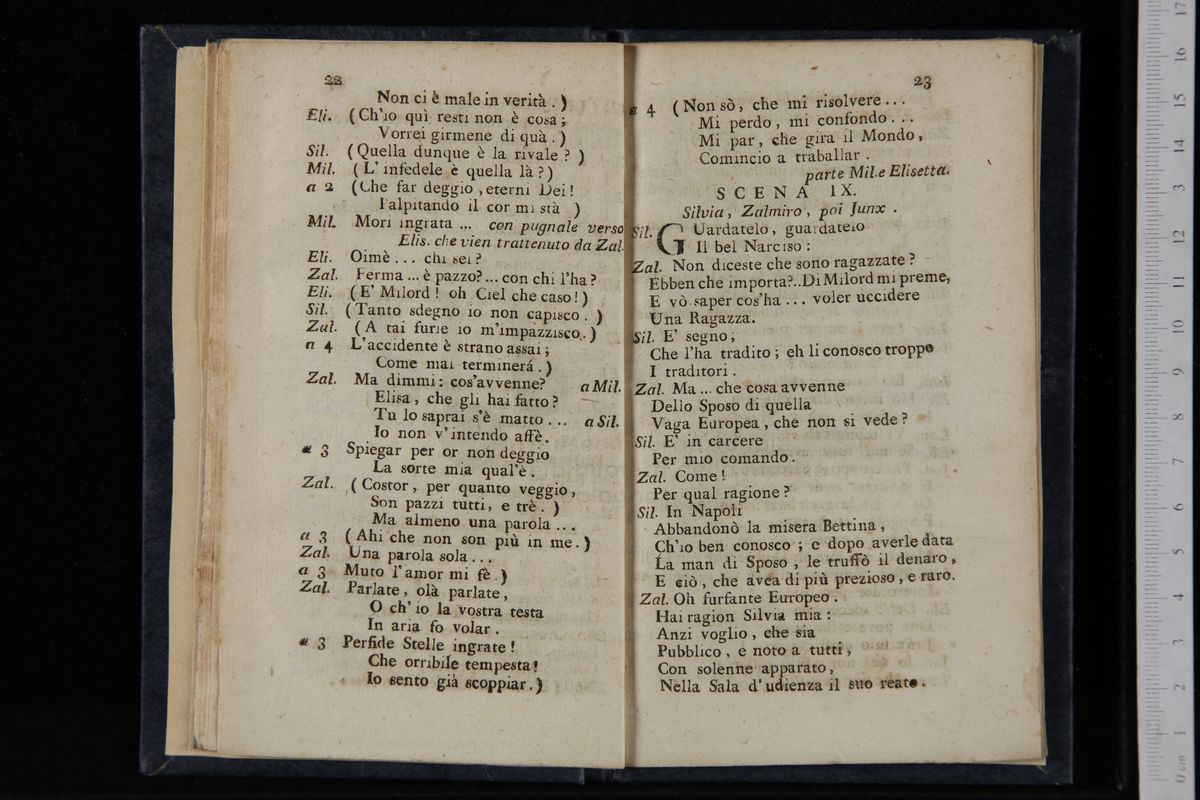 22
Non ci è male in verità . )
Eli. (Ch'io quì resti non è cosa ;
Vorrei girmene di quà . )
Sil. (Quella dunque è la rivale ? )
Mil. (L' infedele è quella là ? )
a 2 (Che far deggio , eterni Dei !
Palpitando il cor mi stà )
Mil. Mori ingrata ... con pugnale verso
Elis. che vien trattenuto da Zal.
Eli. Oimè . . . chi sei ?
Zal. Ferma ... è pazzo ? ... con chi l'ha ?
Eli. (E' Milord ! oh Ciel che caso ! )
Sil. (Tanto sdegno io non capisco . )
Zal. (A tai furie io m'impazzisco . )
a 4 L'accidente è strano assai ;
Come mai terminerá . )
Zal. Ma dimmi : cos'avvenne? a Mil.
Elisa , che gli hai fatto ?
Tu lo saprai s'è matto . . . a Sil.
Io non v'intendo affè.
a 3 Spiegar per or non deggio
La sorte mia qual'è .
Zal. (Costor , per quanto veggio ,
Son pazzi tutti, e trè . )
Ma almeno una parola . . .
a 3 (Ahi che non son più in me . )
Zal. Una parola sola . . .
a 3 Muto l'amor mi fè . )
Zal. Parlate , olà parlate ,
O ch' io la vostra testa
In aria fo volar .
a 3 Perfide Stelle ingrate !
Che orribile tempesta !
Io sento già scoppiar . )
23
a 4 (Non sò , che mi risolvere . . .
Mi perdo , mi confondo . . .
Mi par , che gira il Mondo ,
Comincio a traballar .
parte Mil. e Elisetta.
SCENA IX.
Silvia , Zalmiro , poi Junx .
Sil. GUardatelo , guardatelo
Il bel Narciso :
Zal. Non diceste che sono ragazzate ?
Ebben che importa?..Di Milord mi preme,
E vò saper cos'ha . . . voler uccidere
Una Ragazza.
Sil. E' segno ,
Che l'ha tradito ; eh li conosco troppo
I traditori .
Zal. Ma ... che cosa avvenne
Dello Sposo di quella
Vaga Europea , che non si vede ?
Sil. E' in carcere
Per mio comando .
Zal. Come !
Per qual ragione ?
Sil. In Napoli
Abbandonò la misera Bettina ,
Ch'io ben conosco ; e dopo averle data
La man di Sposo , le truffò il denaro ,
E ciò , che avea di più prezioso , e raro.
Zal. Oh furfante Europeo .
Hai ragion Silvia mia :
Anzi voglio , che sia
Pubblico , e noto a tutti ,
Con solenne apparato ,
Nella Sala d'udienza il suo reato .
0 cm 1 2 3 4 5 6 7 8 9 10 11 12 13 14 15 16 17